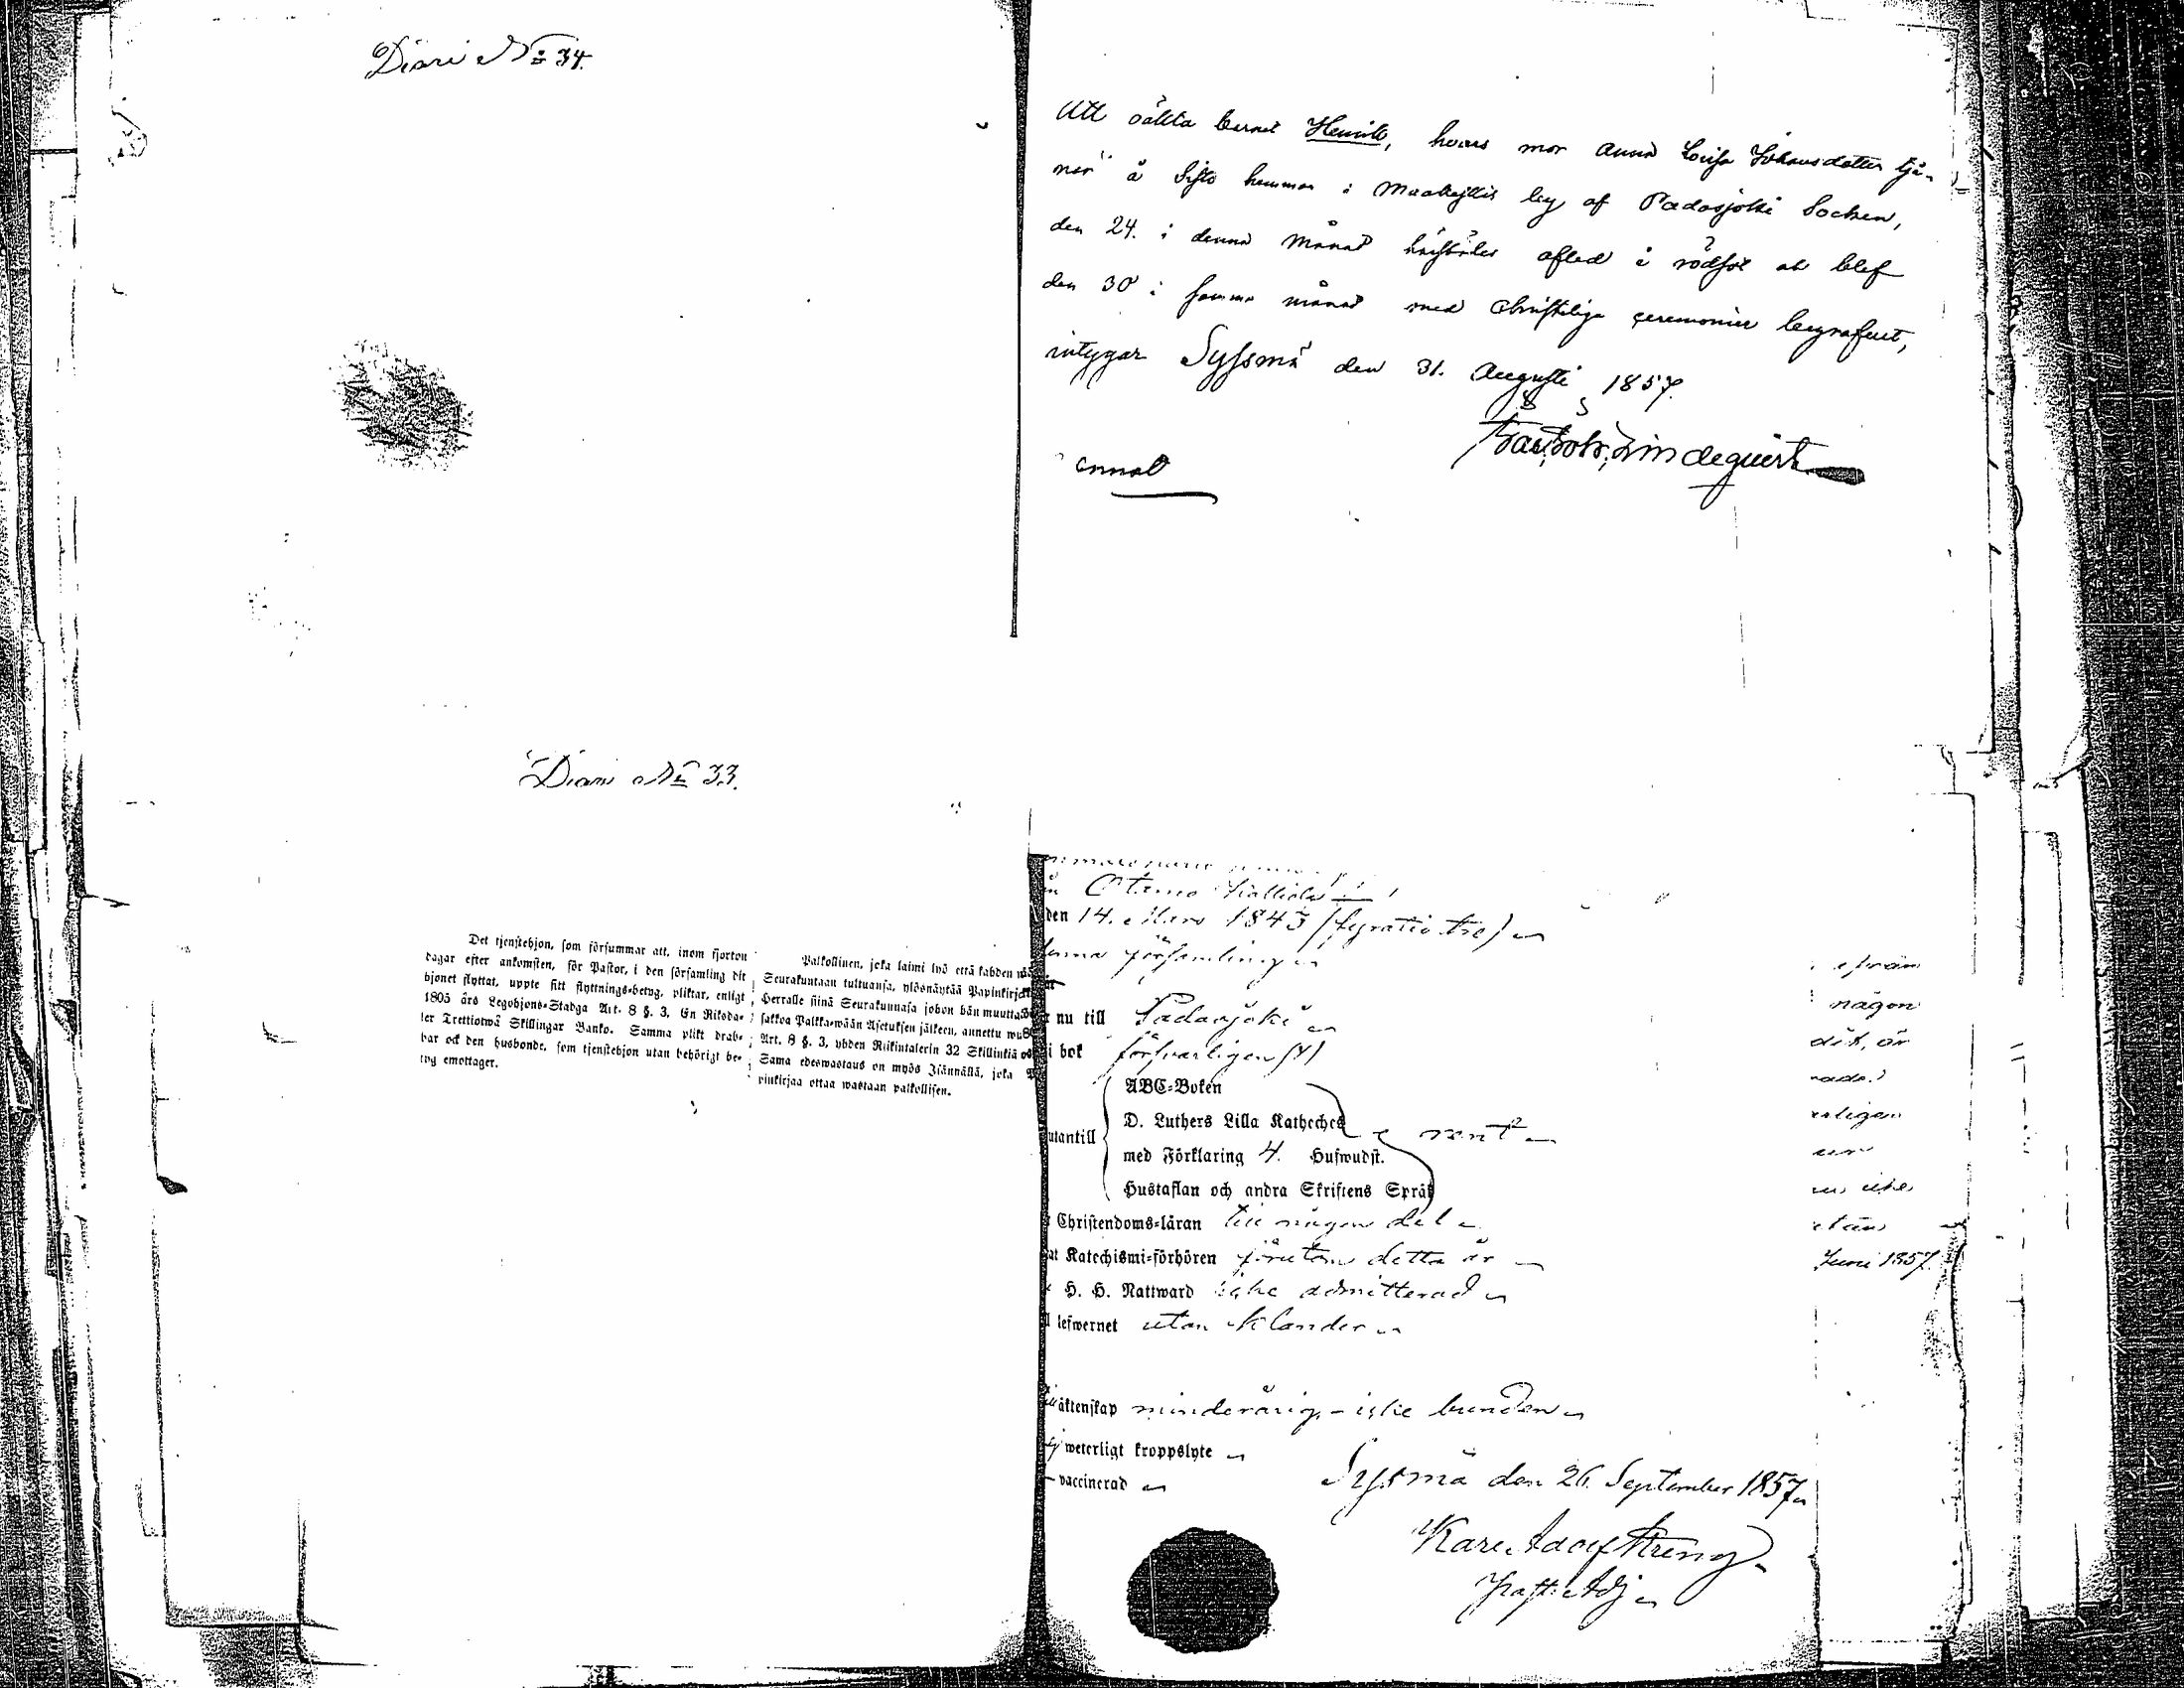 Diari No 34.
Att oäkta barnet Henrik, hvars mor Anna Lovisa Johansdotter tjä-
nar å Sifto hemman i Maakeskis by af Padasjoki Socken,
den 24. i denna Månad härstädes afled i rödsot och blef
den 30 i samma månad med christeliga ceremonier begrafvet,
intygar Syssmä den 31. Augusti 1857.
Lindequist
Diari No 33.
Det tjenstehjon, som försummar att, inom fjorton
dagar efter ankomsten, för Pastor, i den församling dit
hjonet flyttat, uppte sitt flyttnings-betyg, pliktar, enligt
1805 års Legohjons-Stadga Art. 8 §. 3, En Riksda-
ler Trettiotwå Skillingar Banko. Samma plikt drab-
bar ock den husbonde, som tjenstehjon utan behörigt be-
tyg emottager.
Palkollinen, joka laimi lyö että kahden
Seurakuntaan tultuansa, ylösnäytää Papinkirj
Herralle siinä Seurakunnasa johon hän muutta
sakkoa Palkka-wään Asetuksen jälkeen, annettu
Art. 8 §. 3, yhden Riikintalerin 32 Skillinkiä
Sama edeswastaus on myös Isännällä, joka
pinkirjaa ottaa wastaan palkollisen.
Otamo
den 14. Mars 1843 (fyratio tre)
denna församling
nu till Padasjoki
i bok försvarligen
utantill
ABC-Boken
D. Luthers Lilla Katheches
med Förklaring 4. Huswudst.
rent
Hustaflan och andra Skriftens Språk
Christendoms-läran till någon del
Katechismi-förhören förutom detta år
H. H. Nattward icke admitterad
lefwernet utan klander
äktenskap minderårig - icke bunden
weterligt kroppslyte
vaccinerad
Syssmä den 26. September 1857
Karl Adolf Streng
Past. Adj
ifrån
någon
dit, är
erligen
icke
utan
Juni 1857.